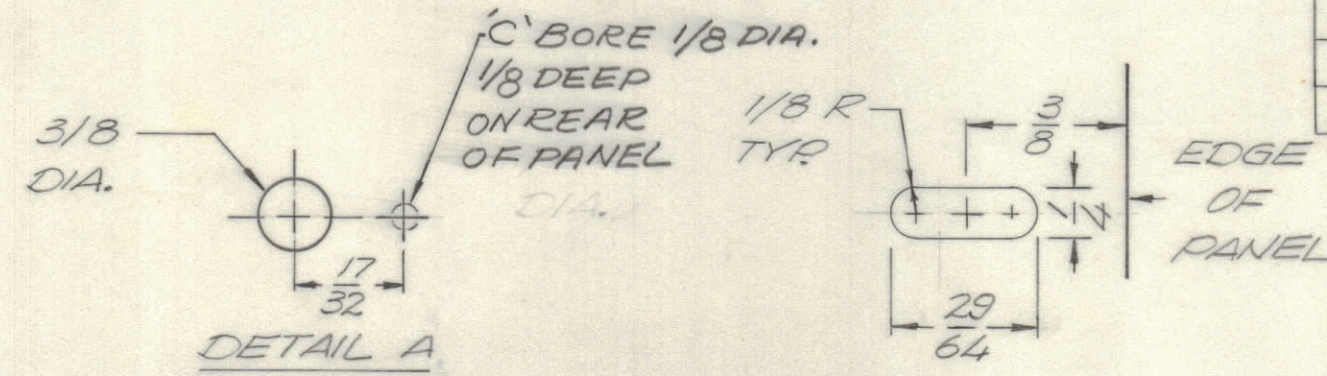 3/8
DIA.
'C' BORE 1/8 DIA.
1/8 DEEP
ON REAR
OF PANEL
DIA.
17/32
DETAIL A
1/8 R
TYP.
3/8
1/4
29/64
EDGE
OF
PANEL